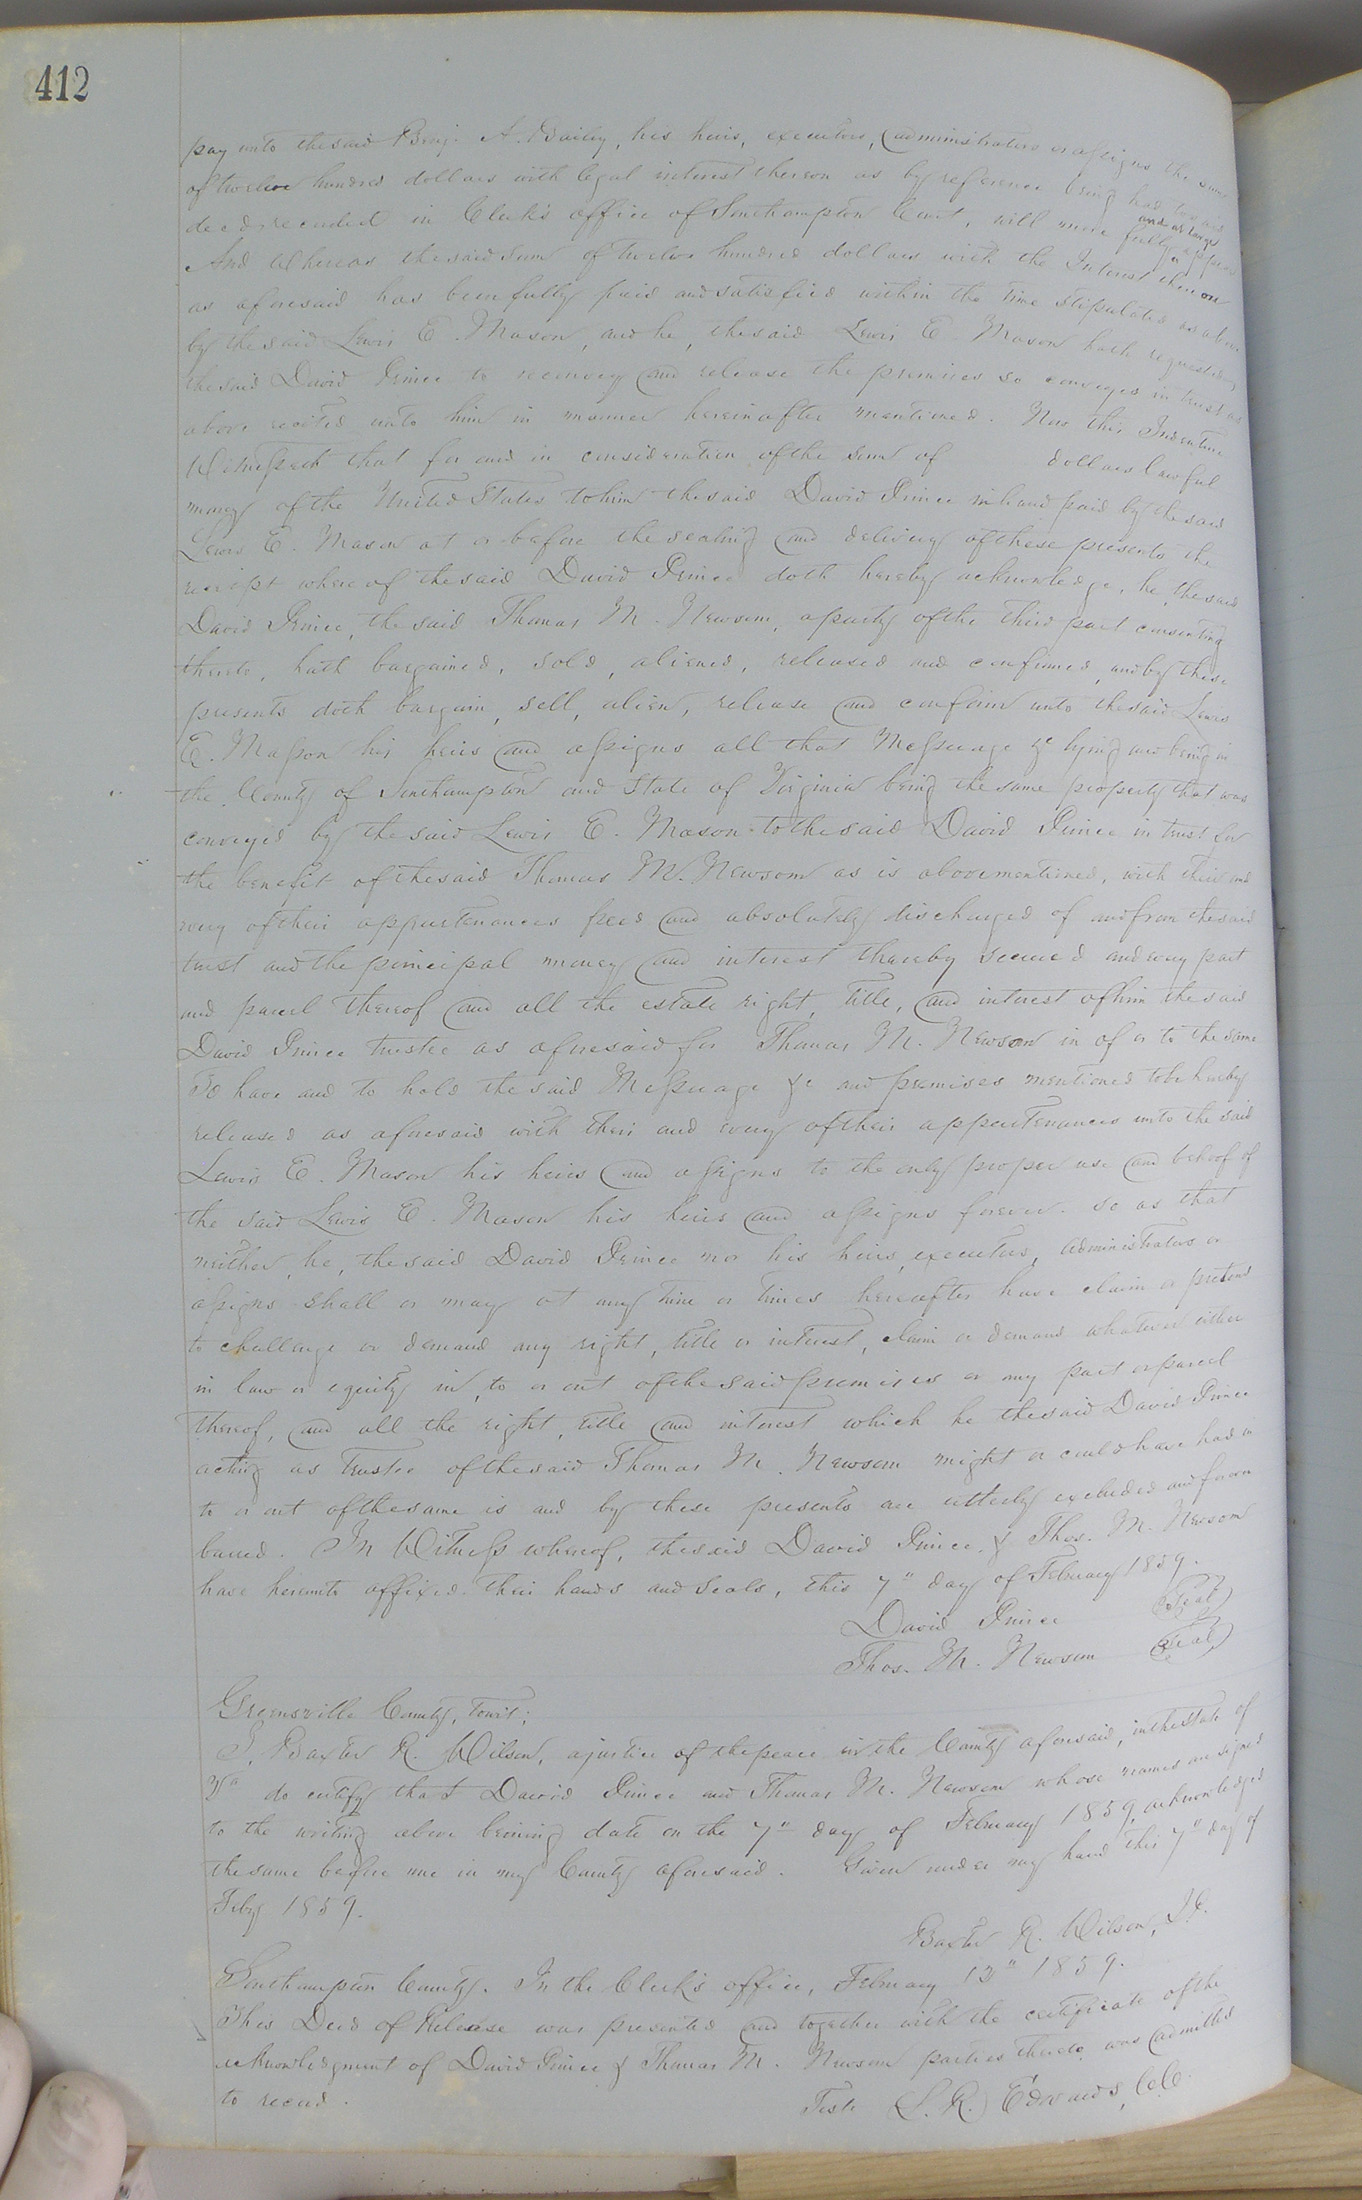 412
pay unto the said Benj. A. Bailey, his heirs, executors, administrators or assigns the sum
of twelve hundred dollars with legal interest thereon as by reference being had to said
deed recorded in Clerk's office of Southampton Court, will more fully and at large appear
And Whereas the said sum of twelve hundred dollars with the Interest thereon
as aforesaid has been fully paid and satisfied within the time stipulated as above
by the said Lewis E. Mason, and he, the said Lewis E. Mason hath requested
the said David Prince to reconvey and release the premises so conveyed in trust as
above recited unto him in manner hereinafter mentioned. Now this Indenture
Witnesseth that for and in consideration of the sum of dollars lawful
money of the United States to him the said David Prince in hand paid by the said
Lewis E. Mason at or before the sealing and delivery of these presents the
receipt whereof the said David Prince doth hereby acknowledge, he, the said
David Prince, the said Thomas M. Newsom, a party of the third part consenting
thereto, hath bargained, sold, aliened, released and confirmed, and by these
presents doth bargain, sell, alien, release and confirm unto the said Lewis
E. Masson his heirs and assigns all that Messuage &c lying and being in
the County of Southampton and State of Virginia being the same property that was
conveyed by the said Lewis E. Mason to the said David Prince in trust for
the benefit of the said Thomas M. Newsom as is above mentioned, with their and
every of their appurtenances freed and absolutely discharged of and from the said
trust and the principal money and interest thereby secured and every part
and parcel thereof and all the estate right, title, and interest of him the said
David Prince trustee as aforesaid for Thomas M. Newsom in of or to the same
To have and to hold the said Messuage &c and premises mentioned to be hereby
released as aforesaid with their and every of their appurtenances unto the said
Lewis E. Mason his heirs and assigns to the only proper use and behoof of
the said Lewis E. Mason his heirs and assigns forever. so as that
neither, he, the said David Prince nor his heirs, executors, administrators or
assigns shall or may at any time or times hereafter have claim or pretend
to challenge or demand any right, title or interest, claim or demand whatever either
in law or equity in, to or out of the said premises or any part or parcel
thereof, and all the right, title and interest which he the said David Prince
acting as Trustee of the said Thomas M. Newsom might or could have had in
to or out of the same is and by these presents are utterly excluded and forever
barred. In Witness whereof, the said David Prince, & Thos. M. Newsom
have hereunto affixed their hands and seals, this 7" day of February 1859.
David Prince (Seal)
Thos. M. Newsom (Seal)
Greensville County, to wit;
I, Baxter R. Wilson, a justice of the peace in the County aforesaid, in the State of
Va do certify that David Prince and Thomas M. Newsom whose names are signed
to the writing above bearing date on the 7" day of February 1859, acknowledged
the same before me in my County aforesaid. Given under my hand this 7" day of
Feby 1859.
Baxter R. Wilson, J.P.
Southampton County. In the Clerk's office, February 12" 1859.
This Deed of Release was presented and together with the certificate of the
acknowledgment of David Prince & Thomas M. Newsom parties thereto was admitted
to record.
Teste L. R. Edwards, C.C.